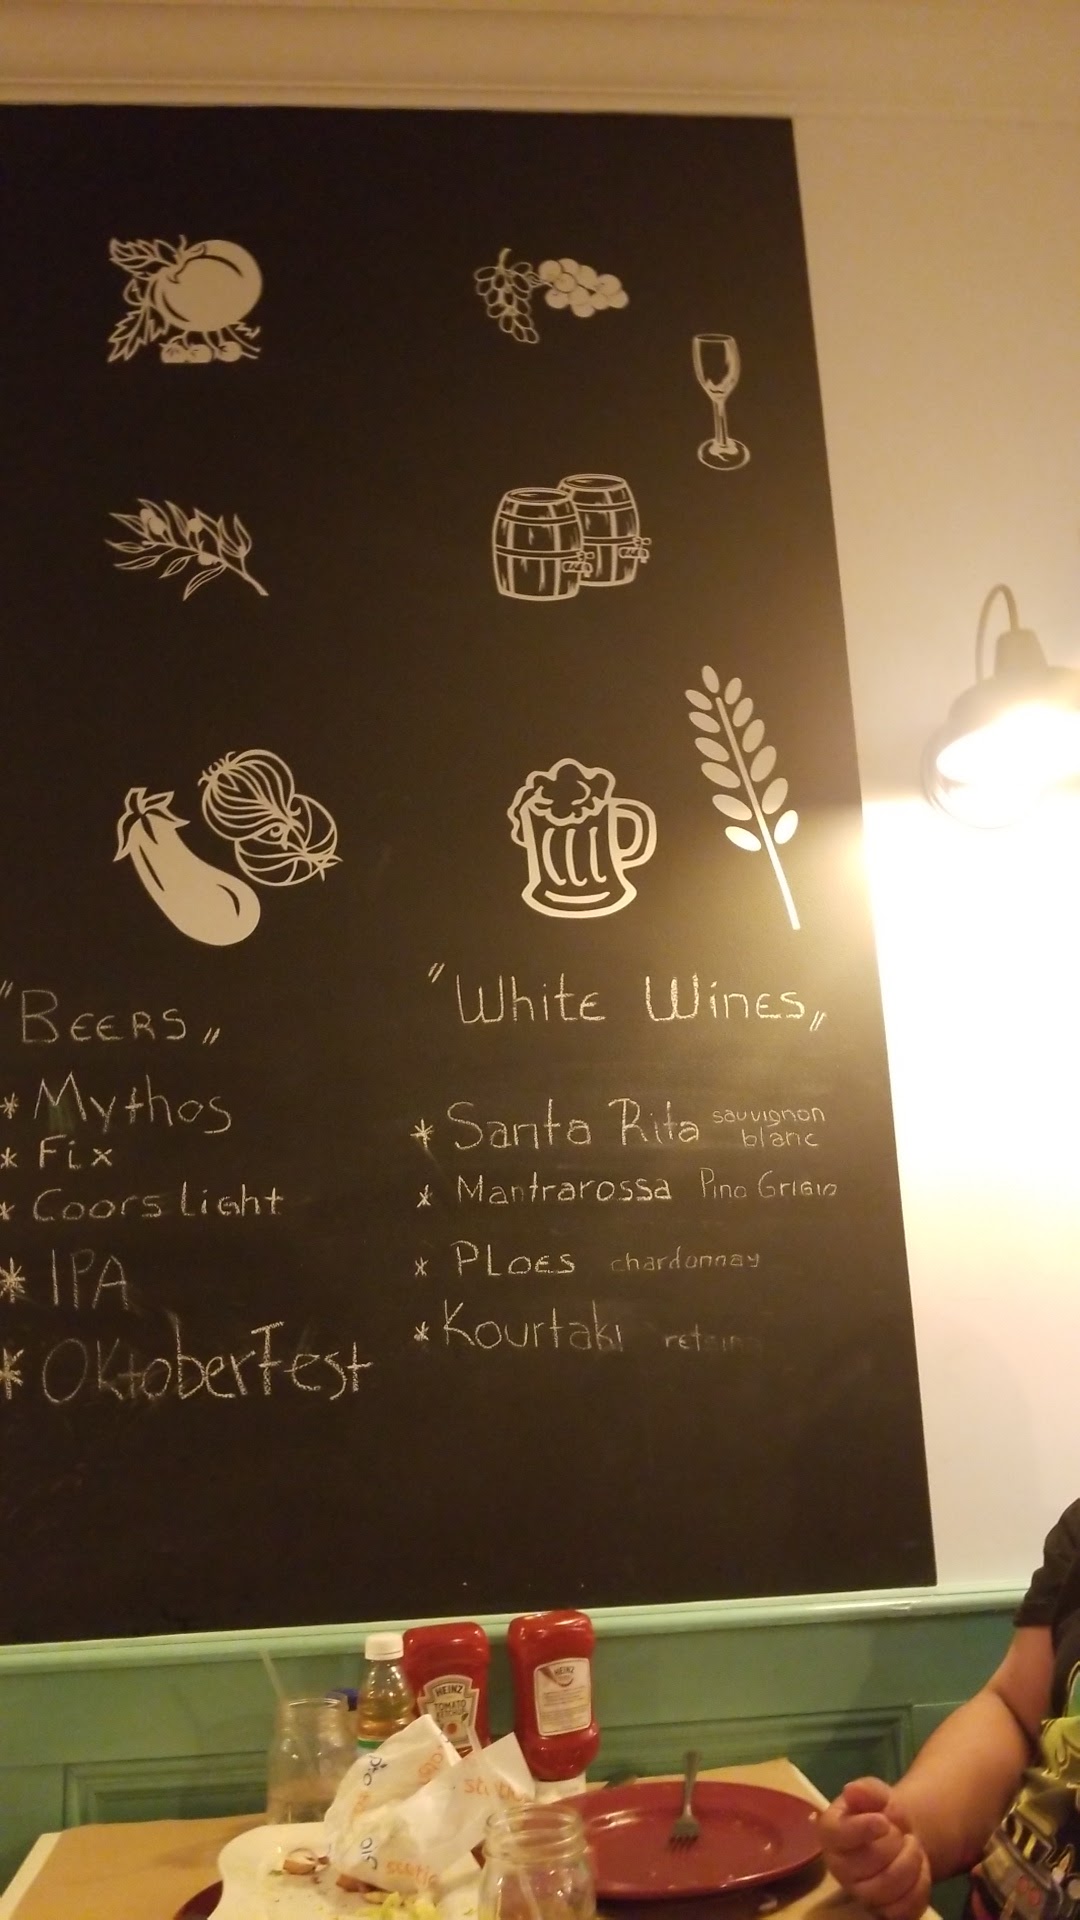 "BEERS„
* Mythos
* Fix
* Coors Light
* IPA
* OktoberFest
"White Wines„
* Santa Rita sauvignon blanc
* Mantrarossa Pino Grigio
* PLOES chardonnay
* Kourtaki
HEINZ
TOMATO
KETCHUP
HEINZ